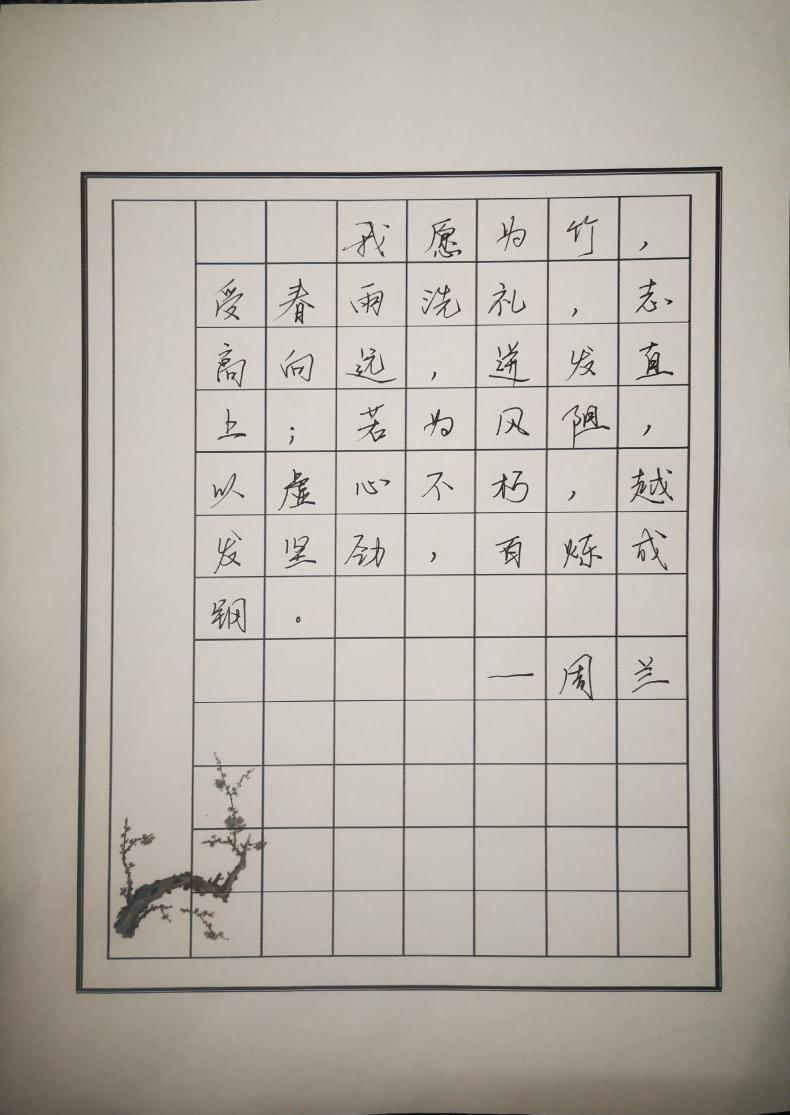 我愿为竹，
受春雨洗礼，志
高向远，迸发直
上；若为风阻，
以虚心不朽，越
发坚劲，百炼成
钢。
—周兰